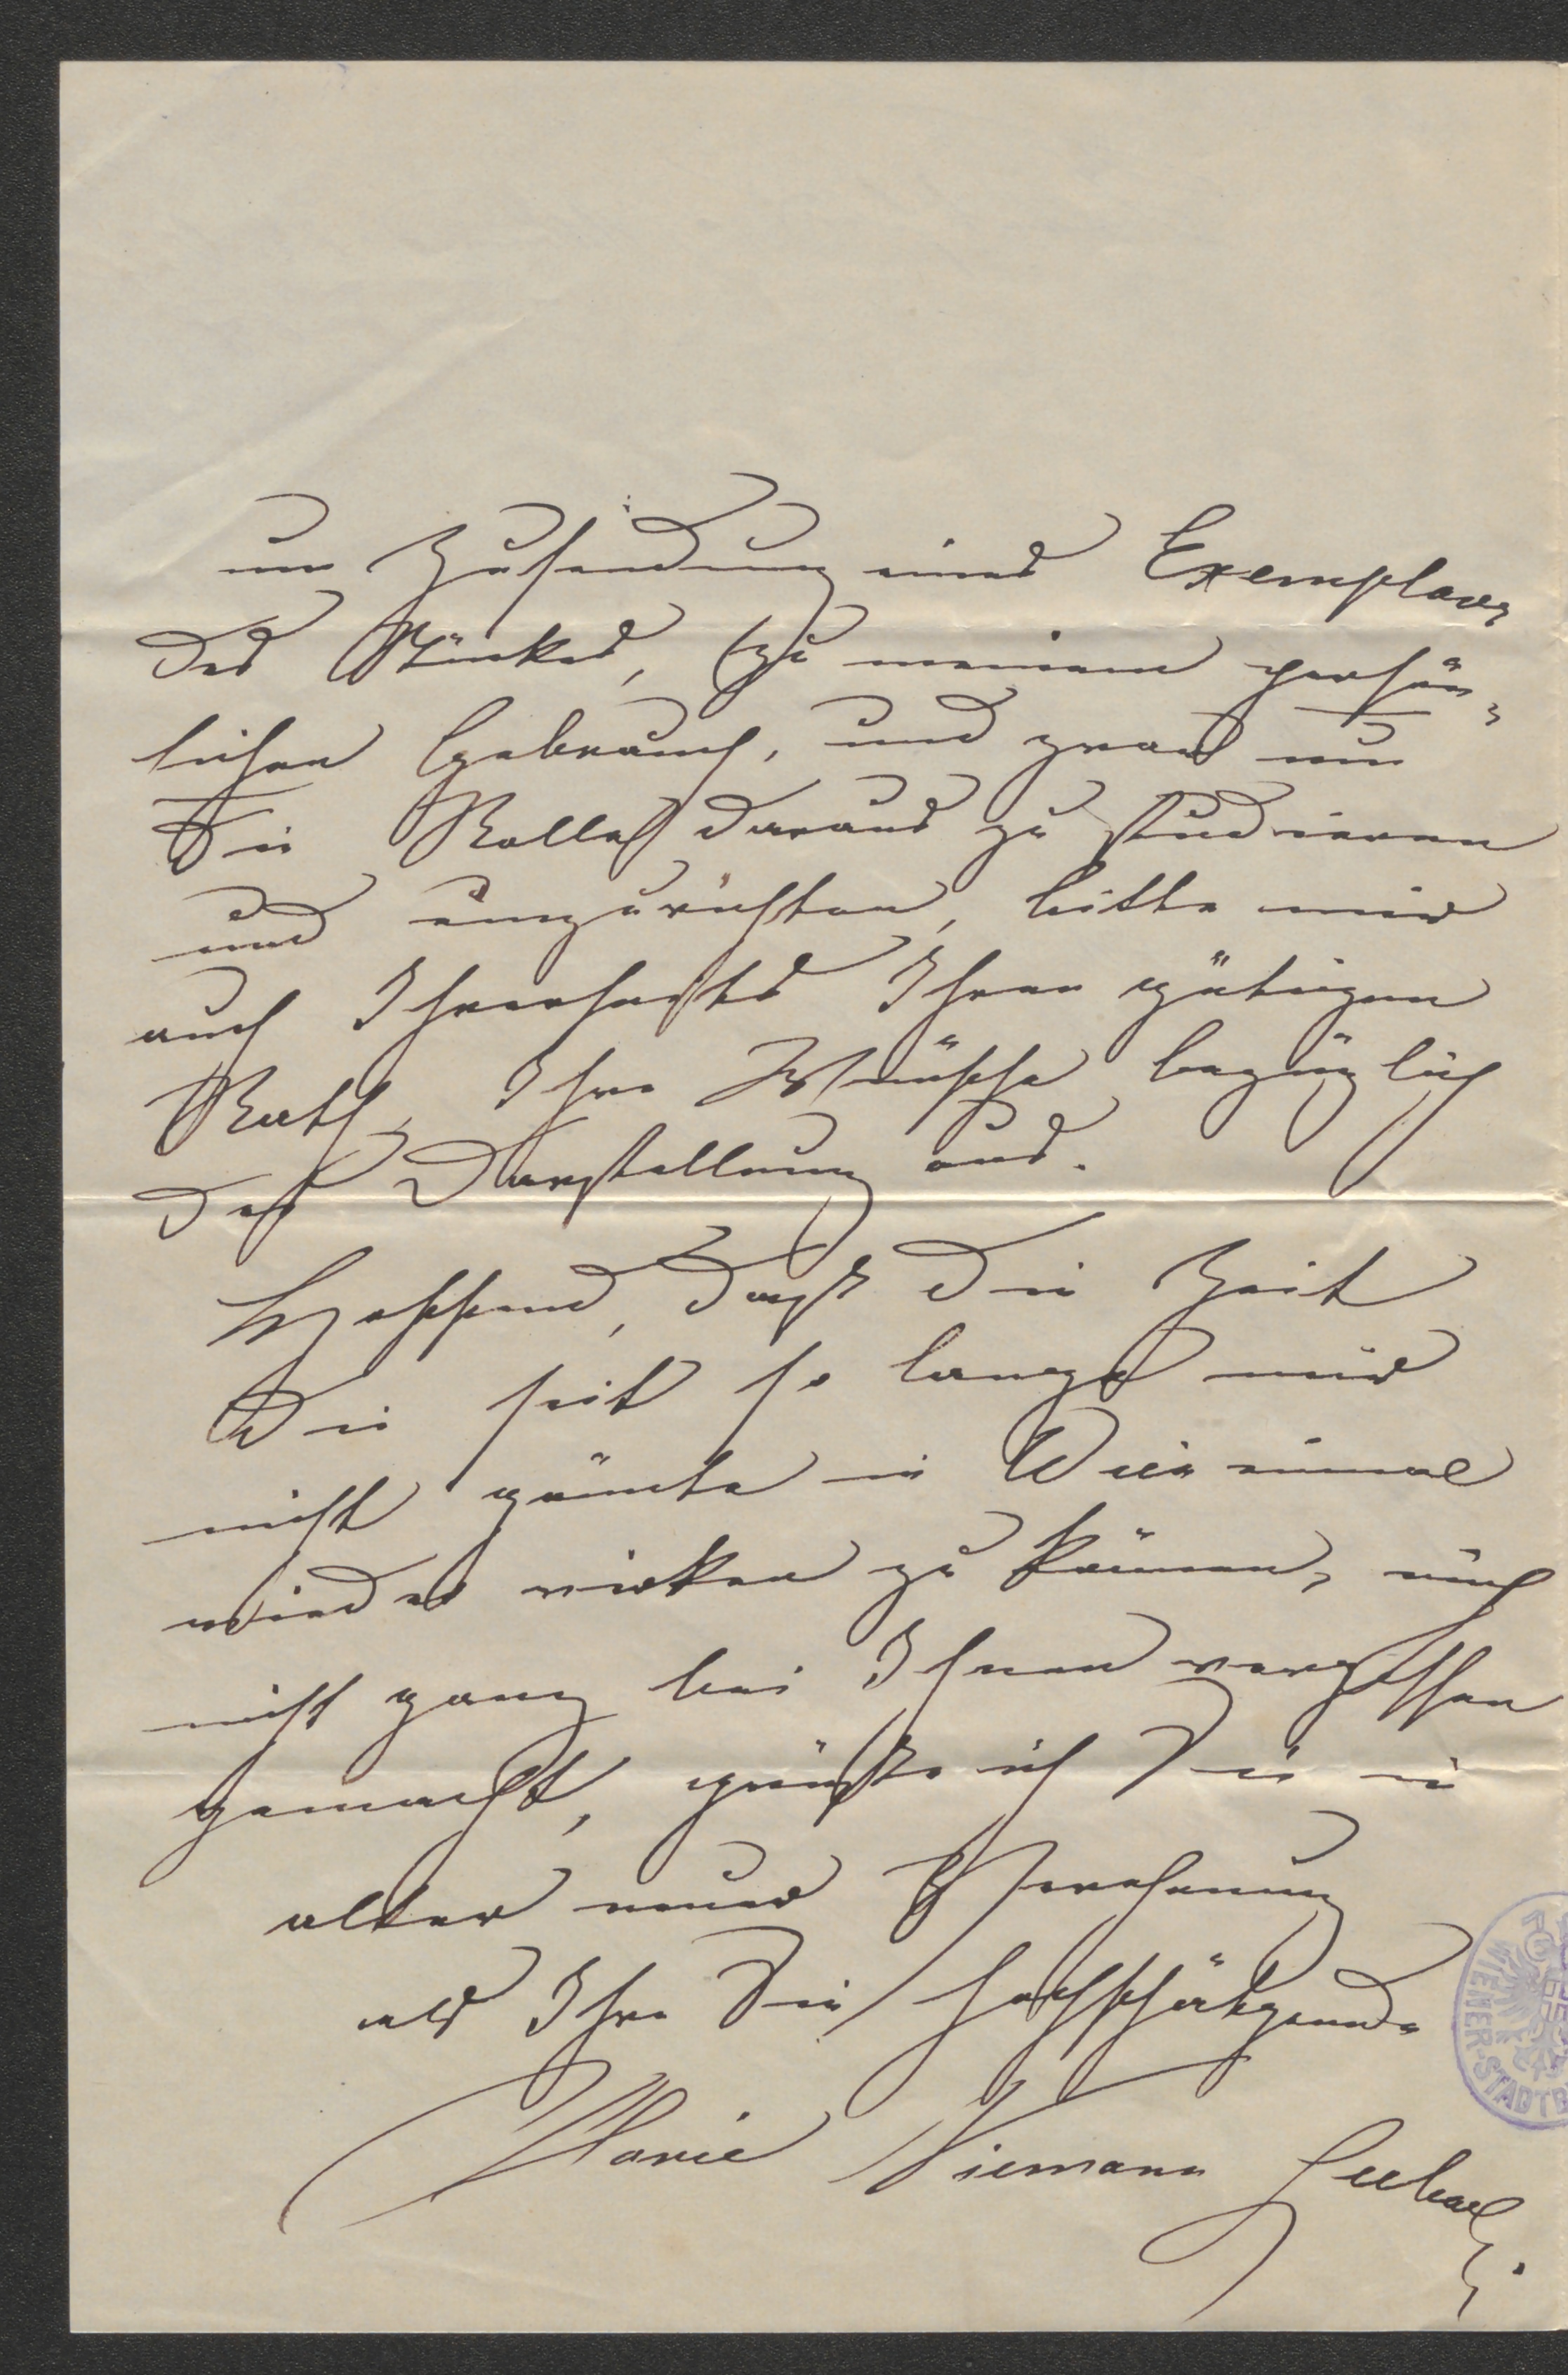 um Zusendung eines Exemplares
des Stückes, (zu meinem persön-
lichen Gebrauch, und zwar um
die Rolle daraus zu studieren
und einzurichten, bitte mir
auch Ihrerseits Ihren gütigen
Rath, Ihre Wünsche bezüglich
der Darstellung aus.
Hoffend, dass die Zeit
die seit so lange mir
nicht gönnte in Wien einmal
wieder wirken zu können, mich
nicht ganz bei Ihnen vergessen
gemacht, grüsse ich Sie in
alter neuer Verehrung
als Ihre Sie hochschätzende
Marie Niemann Seebach
WIENER-STADTB